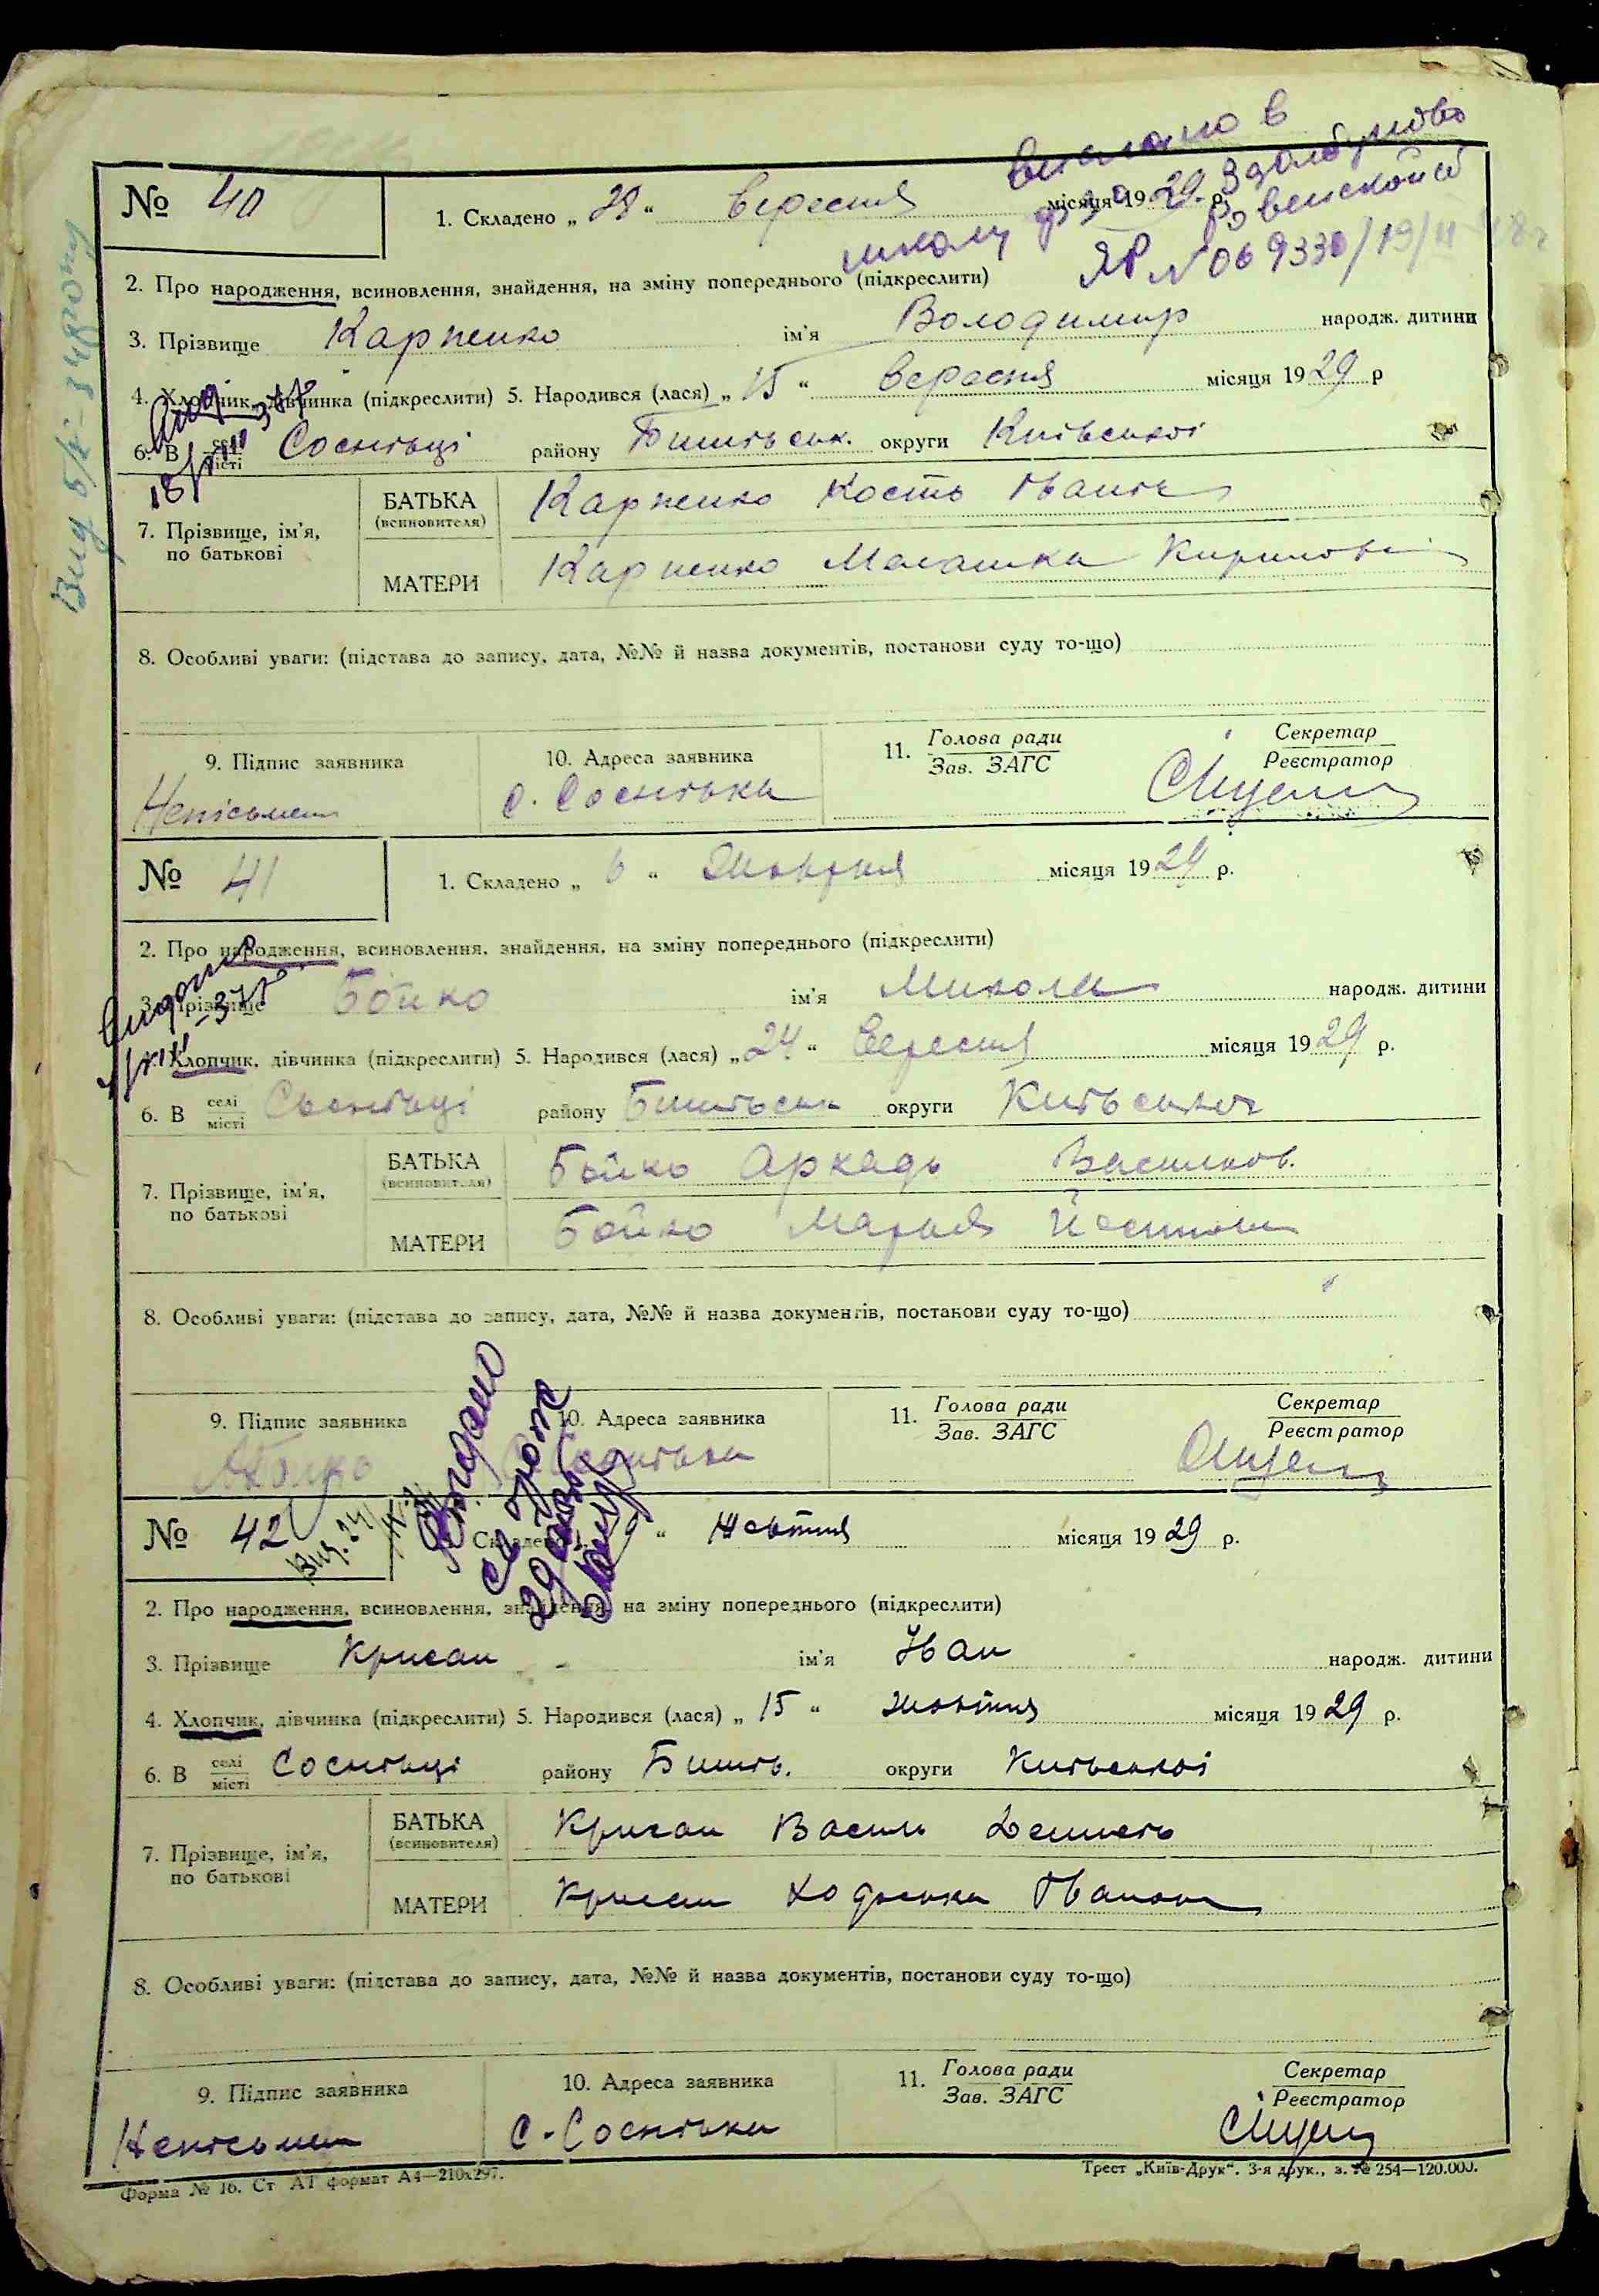 № 40
1. Складено „ 28 “ вересня місяця 1929 р.
ЯР № 069330
2. Про народження, всиновлення, знайдення, на зміну попереднього (підкреслити)
3. Прізвище Карпенко ім'я Володимир народж. дитини
4. Хлопчик, дівчинка (підкреслити) 5. Народився (лася) „ 15 “ вересня місяця 1929 р
6. В селі місті Соснівці району Бишівськ. округи Київської
7. Прізвище, ім'я, по батькові
БАТЬКА (всиновителя) Карпенко Кость Іванів
МАТЕРИ Карпенко Малашка Кирилов
8. Особливі уваги: (підстава до запису, дата, №№ й назва документів, постанови суду то-що)
9. Підпис заявника 10. Адреса заявника 11. Голова ради Зав. ЗАГС Секретар Реєстратор
Неписьмен с. Соснівка
№ 41
1. Складено „ 6 “ Жовтня місяця 1929 р.
2. Про народження, всиновлення, знайдення, на зміну попереднього (підкреслити)
3. Прізвище Бойко ім'я Микола народж. дитини
4. Хлопчик, дівчинка (підкреслити) 5. Народився (лася) „ 24 “ Вересня місяця 1929 р.
6. В селі місті Соснівці району Бишівськ округи Київської
7. Прізвище, ім'я, по батькові
БАТЬКА (всиновителя) Бойко Аркадь Васильов.
МАТЕРИ Бойко Марья
8. Особливі уваги: (підстава до запису, дата, №№ й назва документів, постанови суду то-що)
9. Підпис заявника 10. Адреса заявника 11. Голова ради Зав. ЗАГС Секретар Реєстратор
АБойко С. Соснівка
№ 42
1. Складено “ Жовтня місяця 1929 р.
2. Про народження, всиновлення, знайдення, на зміну попереднього (підкреслити)
3. Прізвище Крисан ім'я Іван народж. дитини
4. Хлопчик, дівчинка (підкреслити) 5. Народився (лася) „ 15 “ жовтня місяця 1929 р.
6. В селі місті Соснівці району Бишів. округи Київської
7. Прізвище, ім'я, по батькові
БАТЬКА (всиновителя) Крисан Василь
МАТЕРИ Крисан Ходоська Іванов
8. Особливі уваги: (підстава до запису, дата, №№ й назва документів, постанови суду то-що)
9. Підпис заявника 10. Адреса заявника 11. Голова ради Зав. ЗАГС Секретар Реєстратор
Неписьмен С. Соснівка
Форма № 16. Ст АТ формат А4—210x297.
Трест „Київ-Друк“. 3-я друк., з. № 254—120.000.